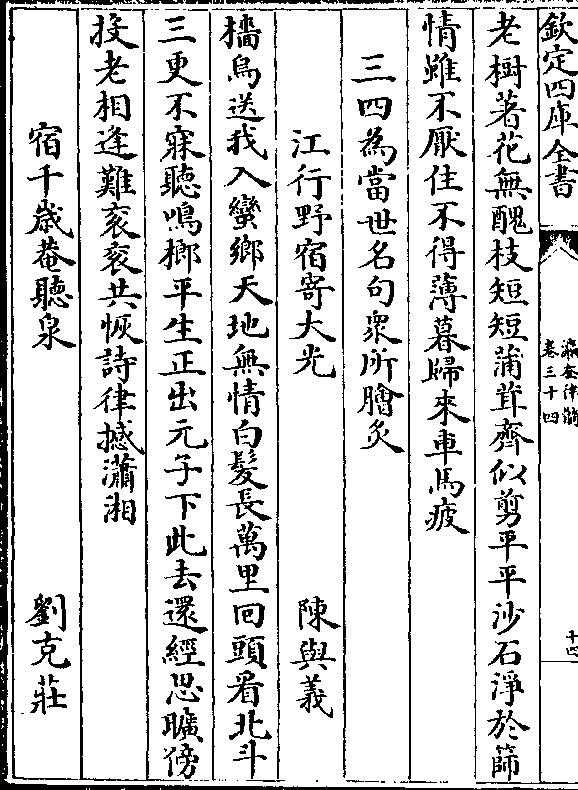 欽定四庫全書
瀛奎律髓
卷三十四
十四
老樹著花無醜枝短短蒲茸齊似剪平平沙石淨於篩
情雖不厭住不得薄暮歸來車馬疲
三四為當世名句衆所膾炙
江行野宿寄大光 陳與義
檣烏送我入蠻鄉天地無情白髮長萬里回頭看北斗
三更不寐聽鳴榔平生正出元子下此去還經思曠傍
投老相逢難衮衮共恢詩律撼瀟湘
宿千歳菴聽泉 劉克莊